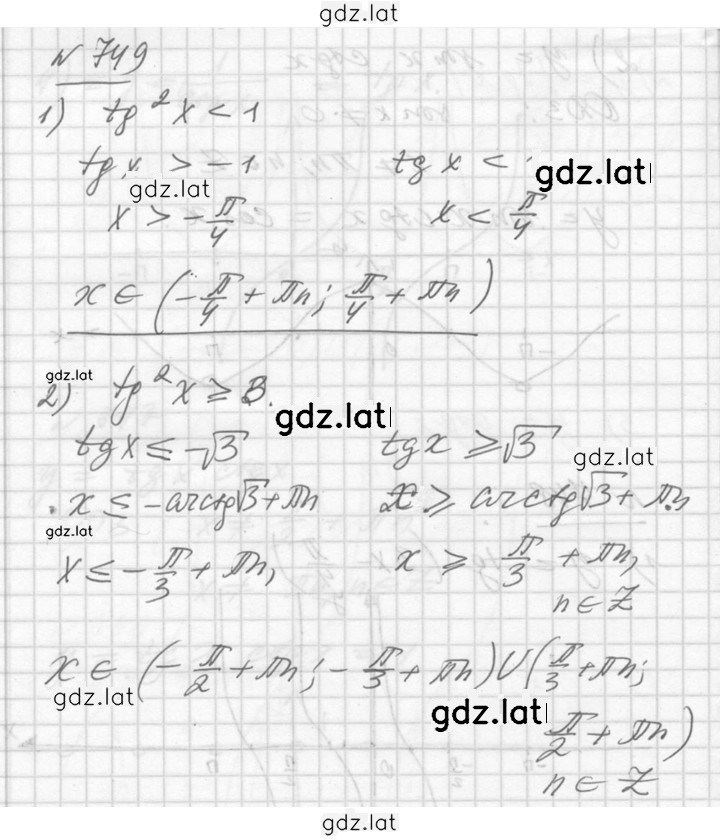 gdz.lat
№ 749
1) tg²x < 1
tgx > -1 tgx <
gdz.lat gdz.lat
x > -π/4 x < π/4
x ∈ (-π/4 + πn; π/4 + πn)
gdz.lat
2) tg²x ≥ 3.
gdz.lat
tgx ≤ -√3 tgx ≥ √3
gdz.lat
x ≤ -arctg√3 + πn x ≥ arctg√3 + πn
gdz.lat
x ≤ -π/3 + πn, x ≥ π/3 + πn,
n ∈ Z
x ∈ (-π/2 + πn; -π/3 + πn) U (π/3 + πn;
gdz.lat gdz.lat
π/2 + πn)
n ∈ Z
gdz.lat